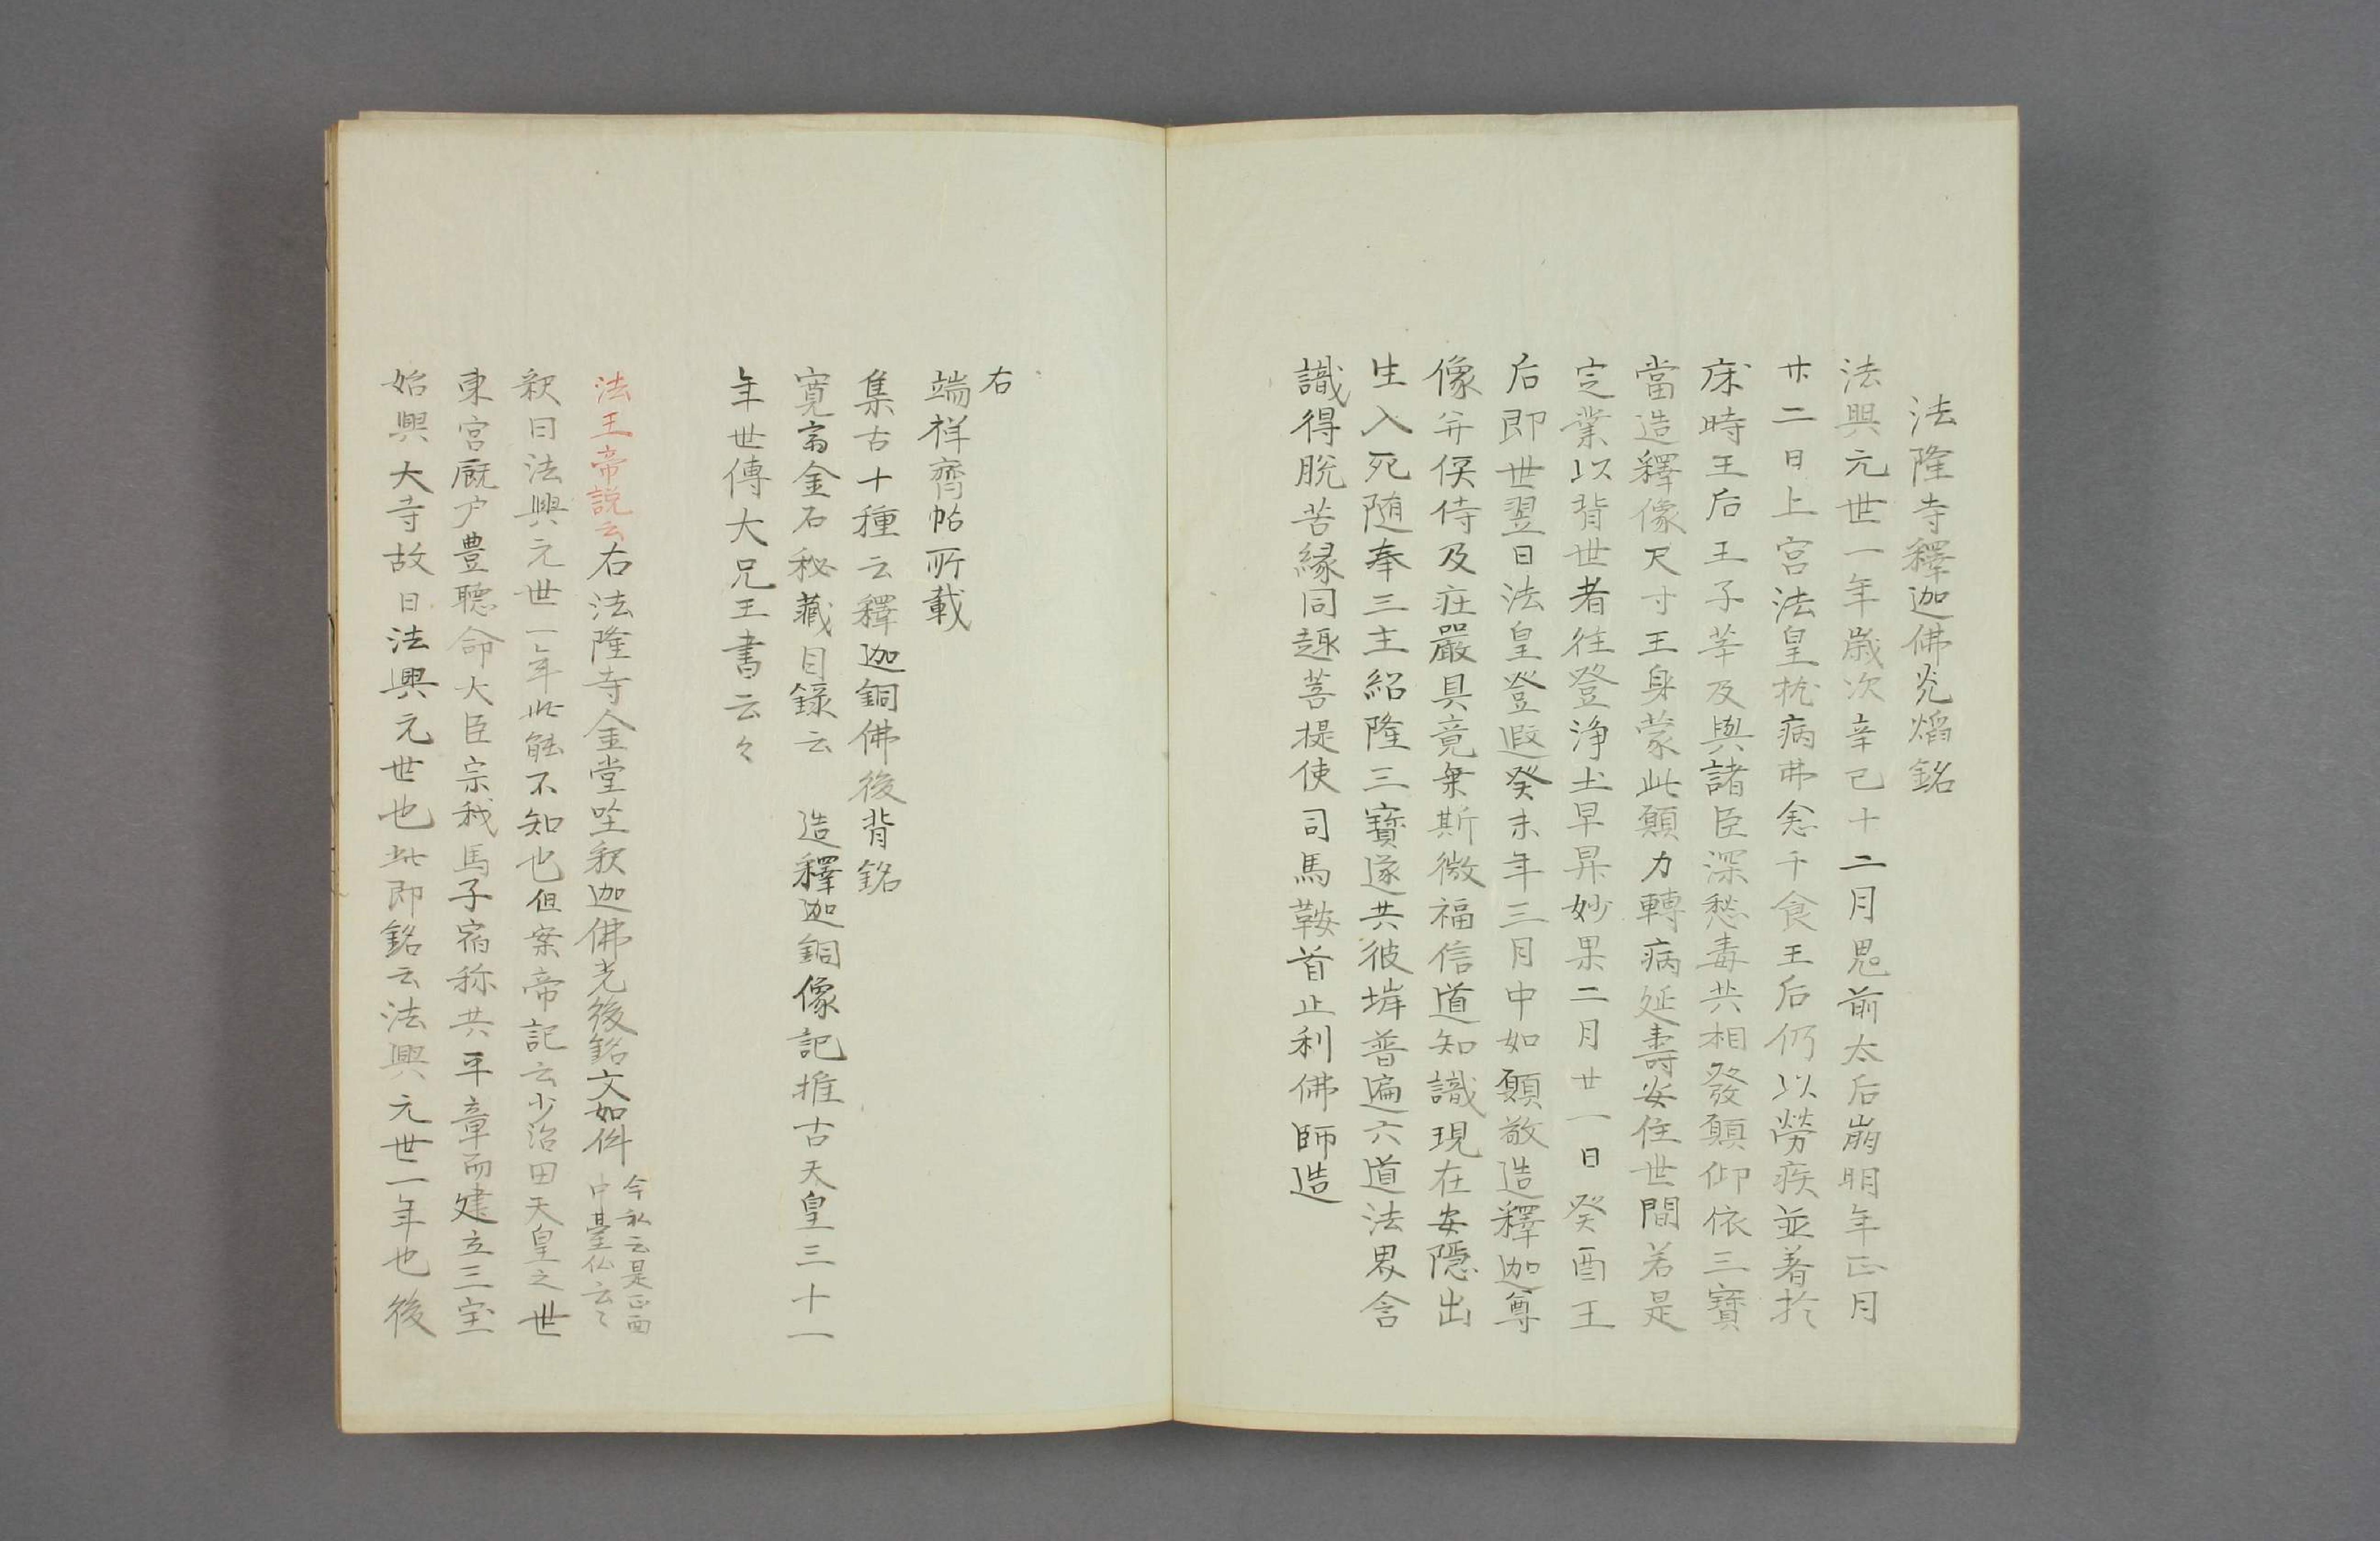 法隆寺釋迦佛光焰銘
法興元世一年歳次辛巳十二月鬼前太后崩明年正月
廿二日上宮法皇枕病弗悆干食王后仍以勞疾並著於
床時王后王子等及與諸臣深愁毒共相發願仰依三寶
當造釋像尺寸王身蒙此願力轉病延壽安住世間若是
定業以背世者往登浄土早昇妙果二月廿一日癸酉王
后即世翌日法皇登遐癸未年三月中如願敬造釋迦尊
像并侠侍及荘嚴具竟乗斯微福信道知識現在安隠出
生入死随奉三主紹隆三寶遂共彼堓普遍六道法界含
識得脱苦縁同趣菩提使司馬鞍首止利佛師造
右
端祥齊帖所載
集古十種云釋迦銅佛後背銘
寛斎金石秘蔵目録云 造釋迦銅像記推古天皇三十一
年世傳大兄王書云々
法王帝説云右法隆寺金堂坐釈迦佛光後銘文如件
今私云是正面
中臺仏云々
釈曰法興元世一年此能不知也但案帝記云少治田天皇之世
東宮厩戸豊聴命大臣宗我馬子宿称共平章而建立三宝
始興大寺故曰法興元世也此即銘云法興元世一年也後